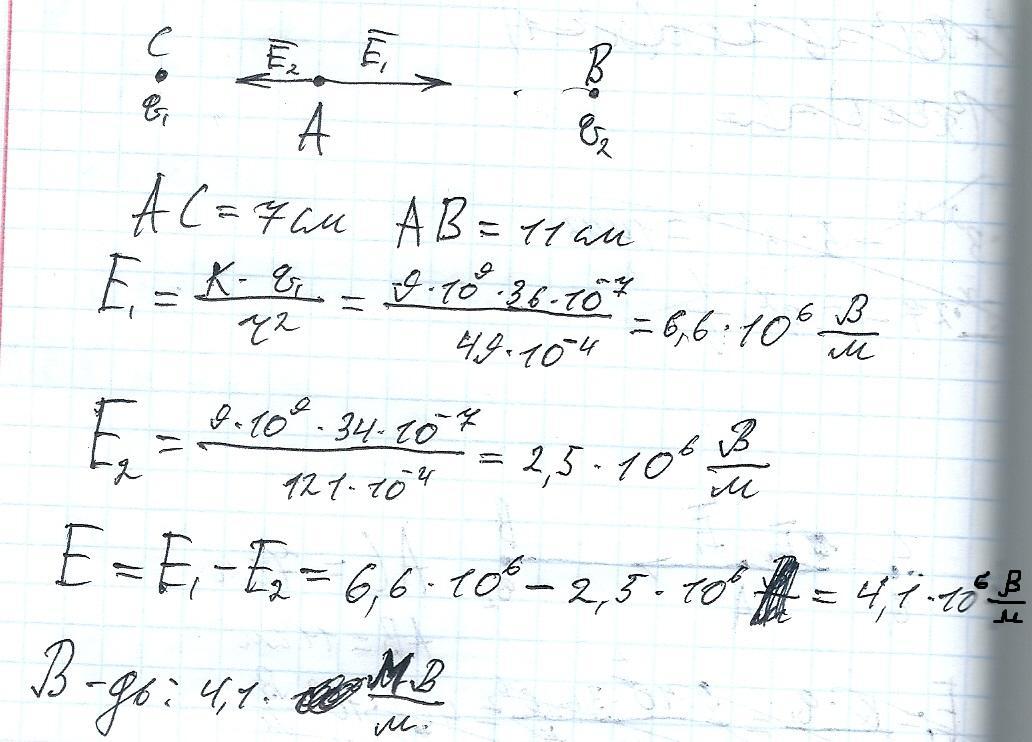 C E₂ E₁ B
q₁ A q₂
AC = 7 см AB = 11 см
E₁ = K · q₁ / r² = 9·10⁹·36·10⁻⁷ / 49·10⁻⁴ = 6,6·10⁶ В/м
E₂ = 9·10⁹·34·10⁻⁷ / 121·10⁻⁴ = 2,5·10⁶ В/м
E = E₁ - E₂ = 6,6·10⁶ - 2,5·10⁶ = 4,1·10⁶ В/м
В-дь: 4,1· МВ/м.